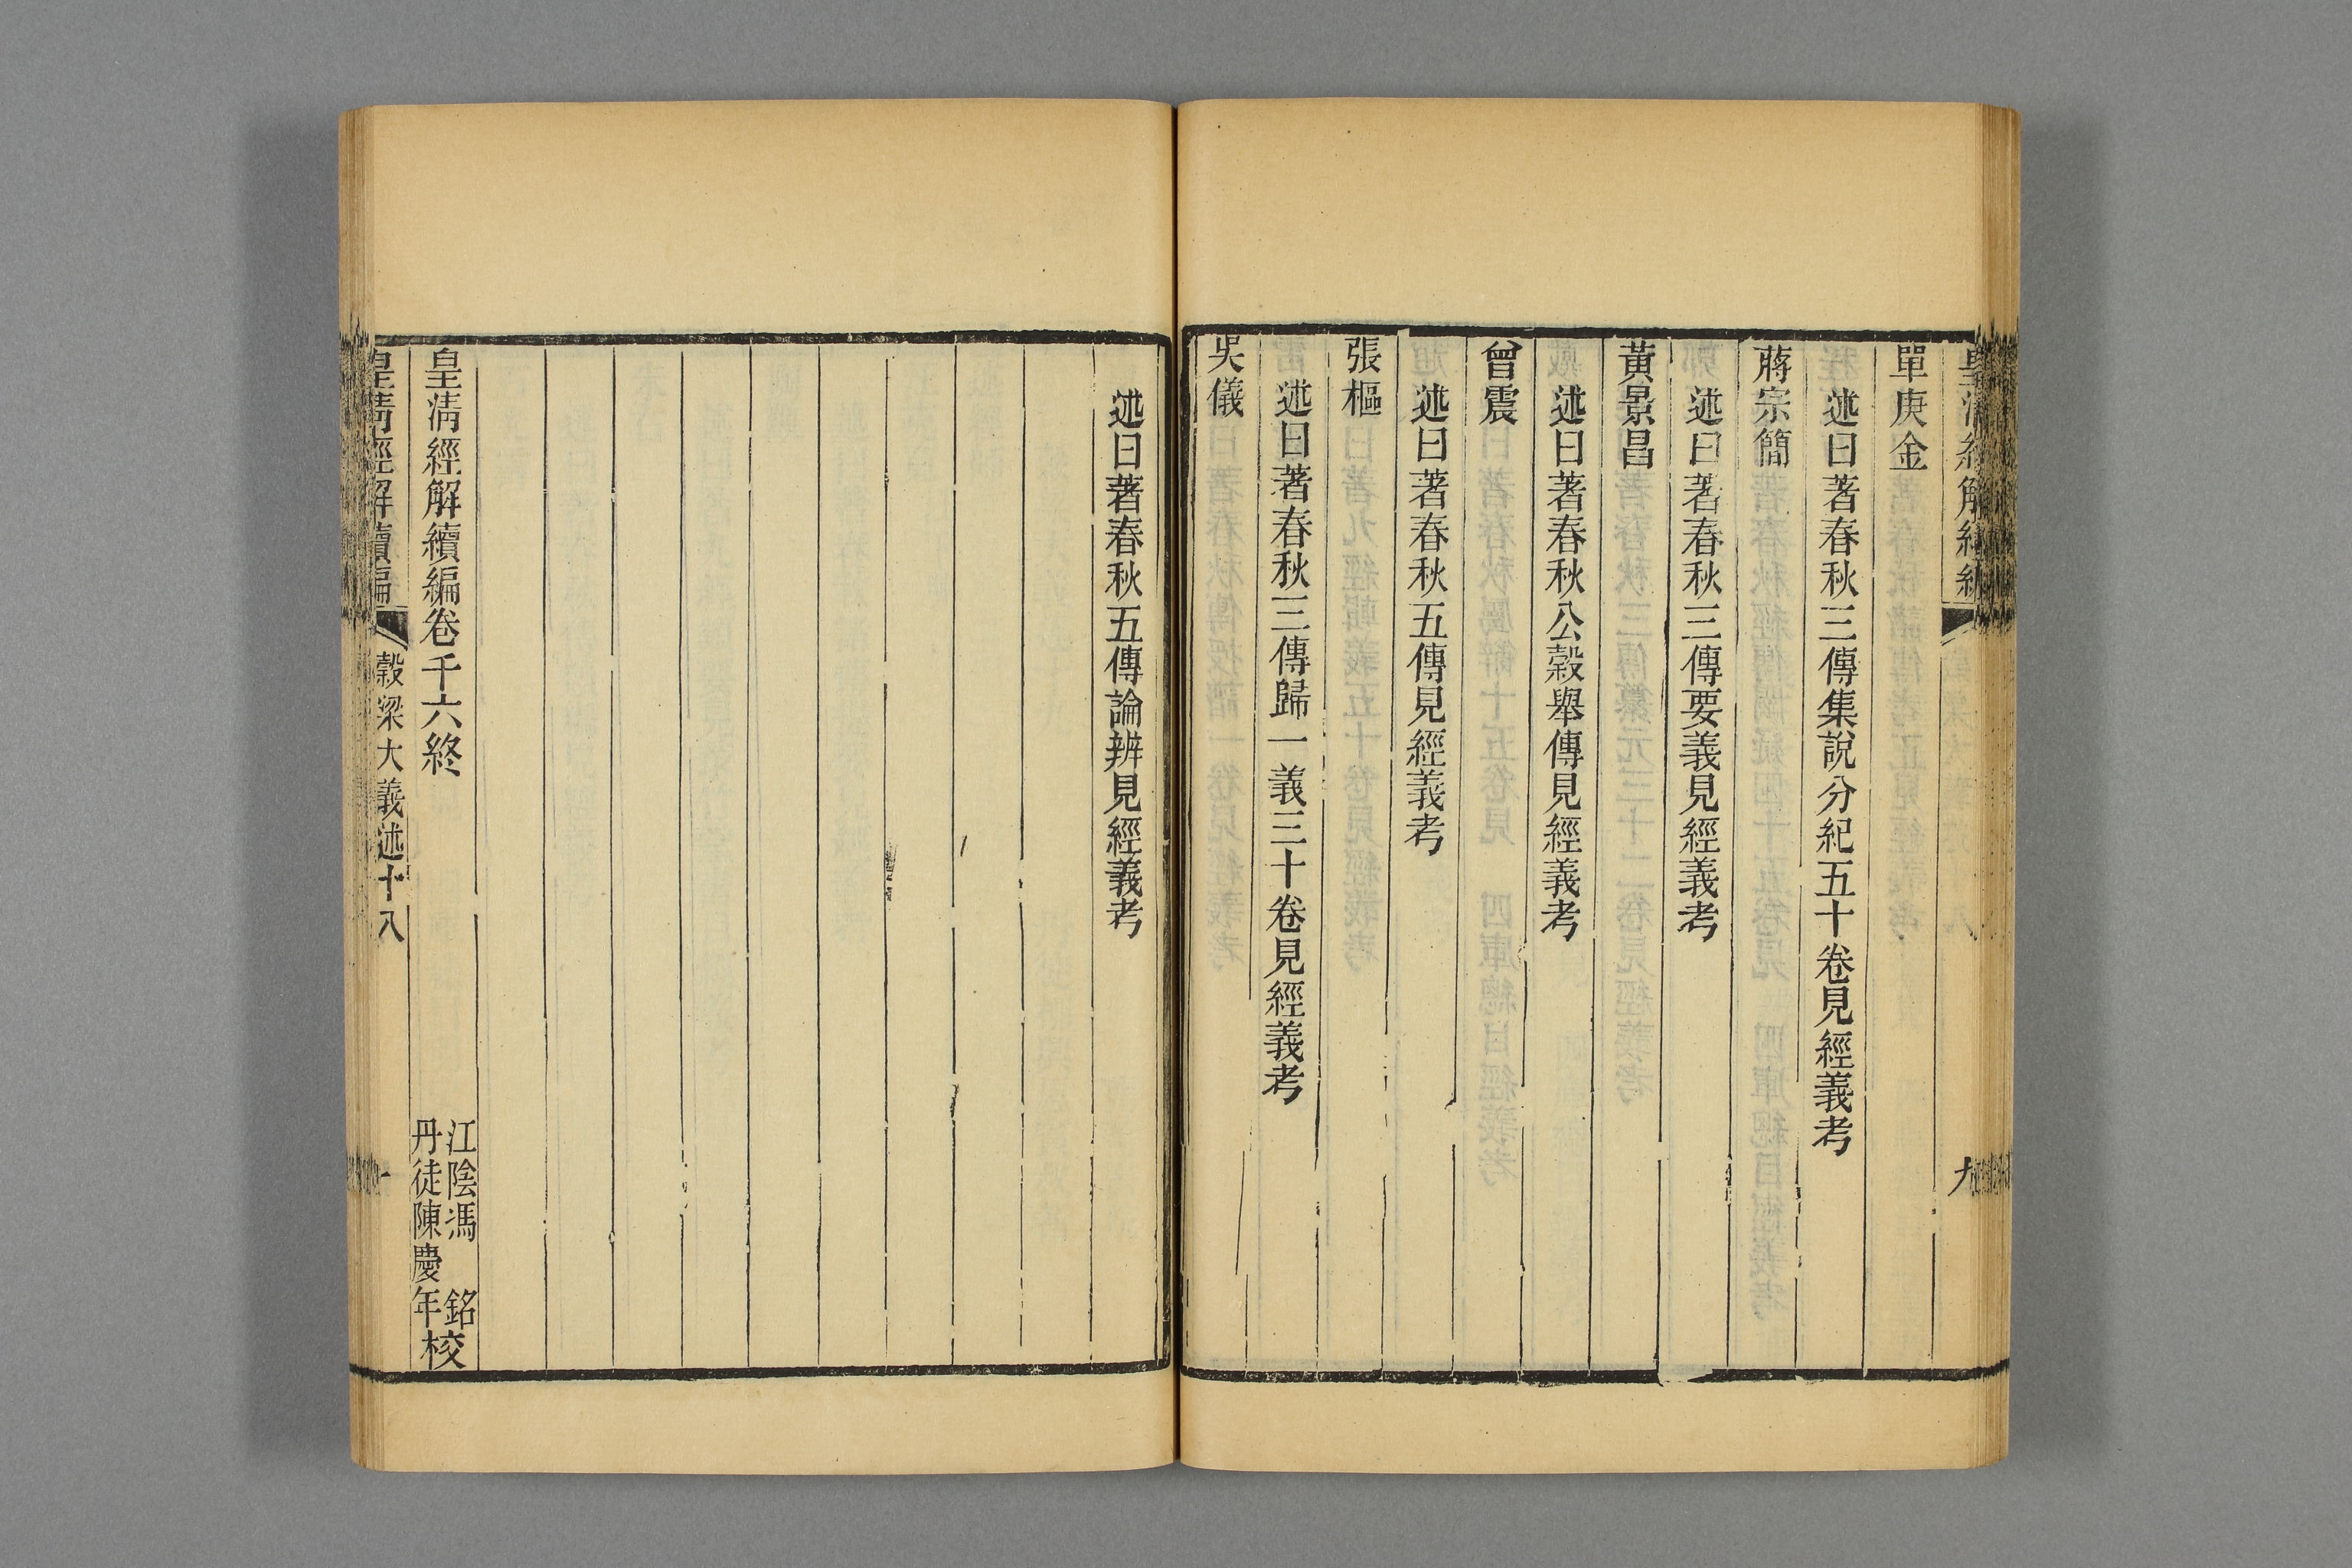 單庚金
述曰著春秋三傳集說分紀五十卷見經義考
蔣宗簡
述曰著春秋三傳要義見經義考
黃景昌
述曰著春秋公穀舉傳見經義考
曾震
述曰著春秋五傳見經義考
張樞
述曰著春秋三傳歸一義三十卷見經義考
吳儀
述曰著春秋五傳論辨見經義考
皇淸經解續編卷千六終
江陰馮銘
丹徒陳慶年校
皇淸經解續編
穀梁大義述十八